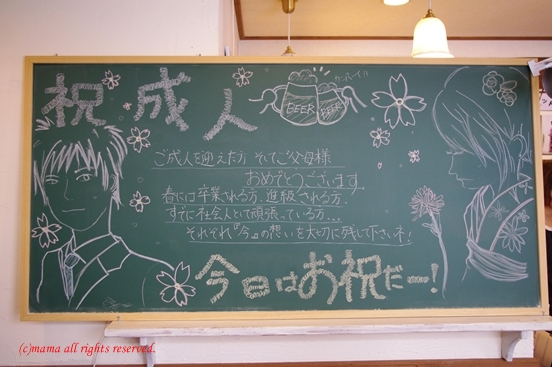 祝成人
カンパーイ!!
BEER BEER
ご成人を迎えた方 そしてご父母様
おめでとうございます
春には卒業される方、進級される方、
すでに社会人として頑張っている方...
それぞれ『今』の想いを大切に残して下さいネ!
今日はお祝だー!
(c)mama all rights reserved.